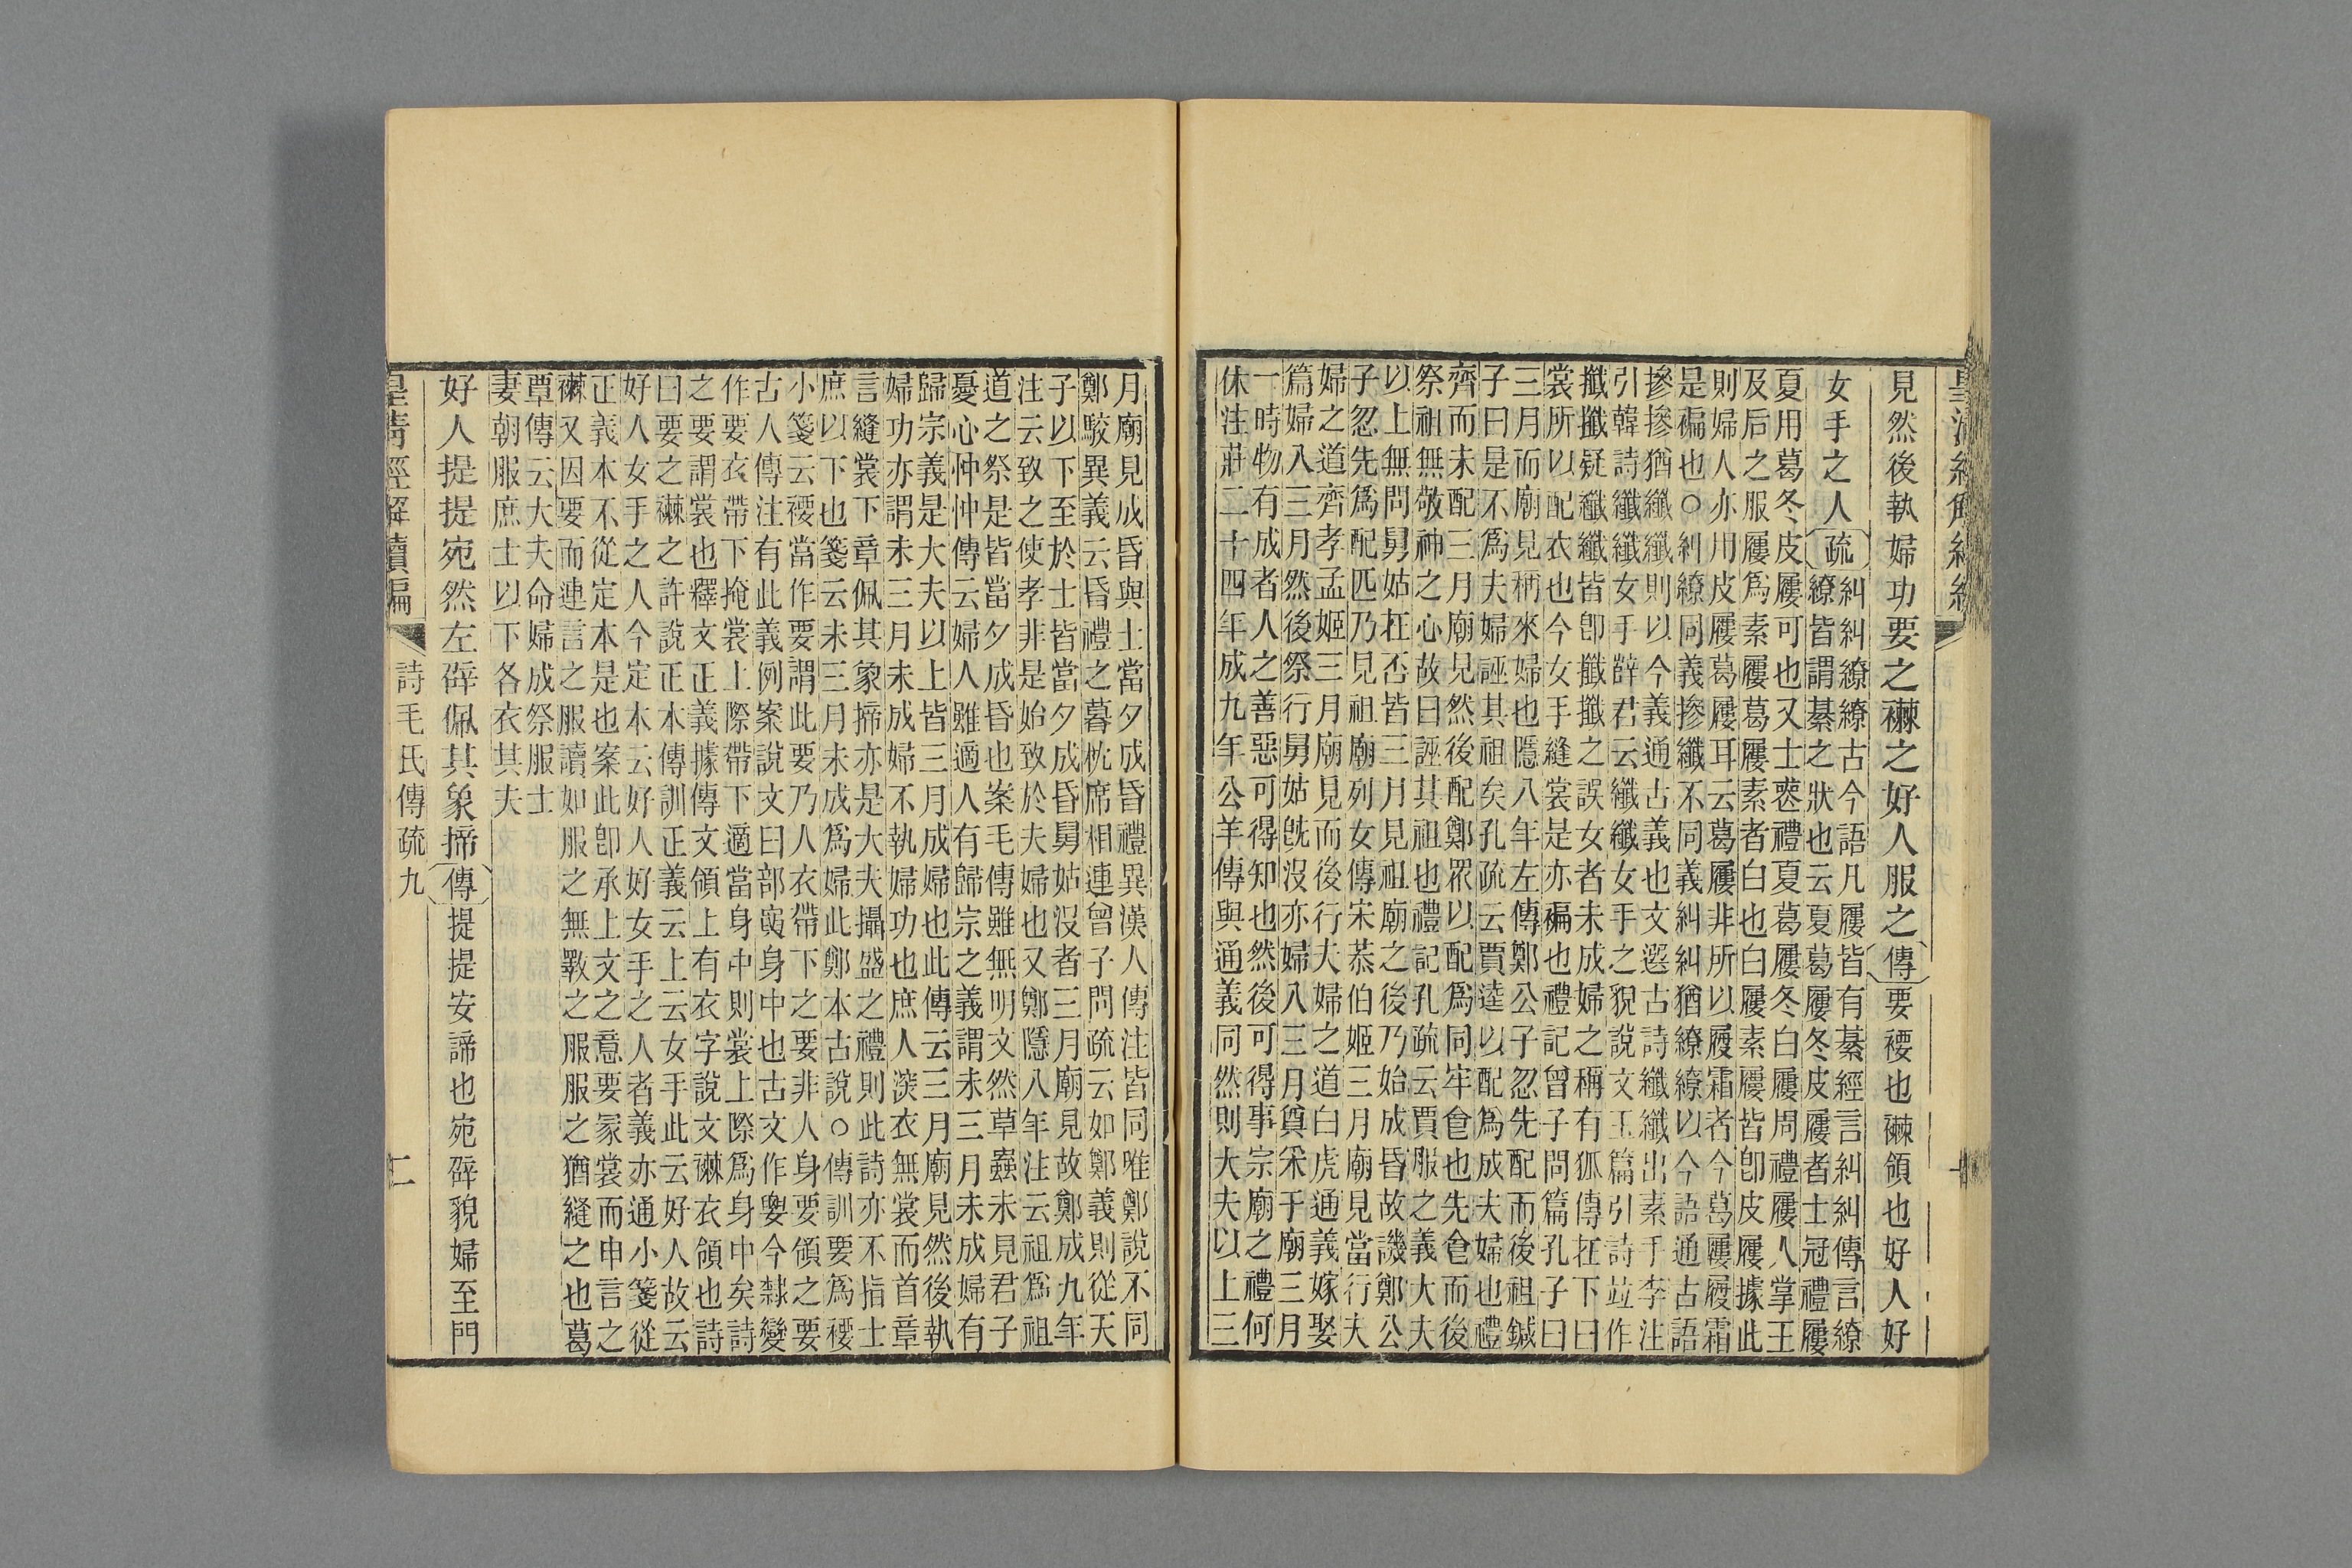 見然後執婦功要之襋之好人服之傳要褄也襋領也好人好
女手之人疏糾糾繚繚古今語凡屨皆有綦經言糾糾傳言繚
繚皆謂綦之狀也云夏葛屨冬皮屨者士冠禮屨
夏用葛冬皮屨可也又士喪禮夏葛屨冬白屨周禮屨人掌王
及后之服屨爲素屨葛屨素者白也白屨素屨皆卽皮屨據此
則婦人亦用皮屨葛屨耳云葛屨非所以履霜者今葛屨履霜
是褊也○糾繚同義摻纖不同義糾糾猶繚繚以今語通古語
摻摻猶纖纖則以今義通古義也文選古詩纖纖出素手李注
引韓詩纖纖女手薛君云纖纖女手之貌說文手篇引詩竝作
攕攕疑纖纖皆卽攕攕之誤女者未成婦之稱有狐傳在下曰
裳所以配衣也今女手縫裳是亦褊也禮記曾子問篇孔子曰
三月而廟見柄來婦也隱八年左傳鄭公子忽先配而後祖鍼
子曰是不爲夫婦誣其祖矣孔疏云賈逵以配爲成夫婦也禮
齊而未配三月廟見然後配鄭眾以配爲同牢食也先食而後
祭祖無敬神之心故曰誣其祖也禮記孔疏云賈服之義大夫
以上無問舅姑在否皆三月見祖廟之後乃始成昏故譏鄭公
子忽先爲配匹乃見祖廟列女傳宋恭伯姬三月廟見當行夫
婦之道齊孝孟姬三月廟見而後行夫婦之道白虎通義嫁娶
篇婦入三月然後祭行舅姑旣沒亦婦入三月奠采于廟三月
一時物有成者人之善惡可得知也然後可得事宗廟之禮何
休注莊二十四年成九年公羊傳與通義同然則大夫以上三
月廟見成昏與士當夕成昏禮異漢人傳注皆同唯鄭說不同
鄭駮異義云昏禮之暮枕席相連曾子問疏云如鄭義則從天
子以下至於士皆當夕成昏舅姑沒者三月廟見故鄭成九年
注云致之使孝非是始致於夫婦也又鄭隱八年注云祖爲祖
道之祭是皆當夕成昏也案毛傳雖無明文然草蟲未見君子
憂心忡忡傳云婦人雖適人有歸宗之義謂未三月未成婦有
歸宗義是大夫以上皆三月成婦也此傳云三月廟見然後執
婦功亦謂未三月未成婦不執婦功也庶人深衣無裳而首章
言縫裳下章佩其象揥亦是大夫攝盛之禮則此詩亦不指士
庶以下也箋云未三月未成爲婦此鄭本古說○傳訓要爲褄
小箋云褄當作要謂此要乃人衣帶下之要非人身要領之要
古人傳注有此義例案說文曰部𦥼身中也古文作𡢗今隸變
作要衣帶下掩裳上際帶下適當身中則裳上際爲身中矣詩
之要謂裳也釋文正義據傳文領上有衣字說文襋衣領也詩
曰要之襋之許說正本傳訓正義云上云女手此云好人故云
好人女手之人今定本云好人好女手之人者義亦通小箋從
正義本不從定本是也案此卽承上文之意要冡裳而申言之
襋又因要而連言之服讀如服之無斁之服服之猶縫之也葛
覃傳云大夫命婦成祭服士
妻朝服庶士以下各衣其夫
好人提提宛然左辟佩其象揥傳提提安諦也宛辟貌婦至門
皇清經解續編 詩毛氏傳疏九 二